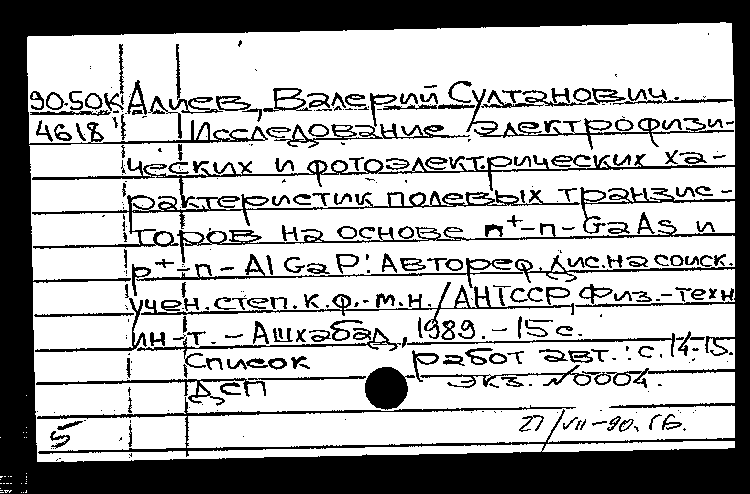 90-50К Алиев, Валерий Султанович.
4618 Исследование электрофизи-
ческих и фотоэлектрических ха-
рактеристик полевых транзис-
торов на основе n⁺-n-GaAs и
p⁺-n-AlGaP: Автореф. дис. на соиск.
учен. степ. к.ф.-м.н. / АН ТССР, Физ.-техн.
ин-т. - Ашхабад, 1989. - 15 с.
Список работ авт.: с. 14-15.
ДСП экз. N 0004.
5 27/VII-90. ГБ.